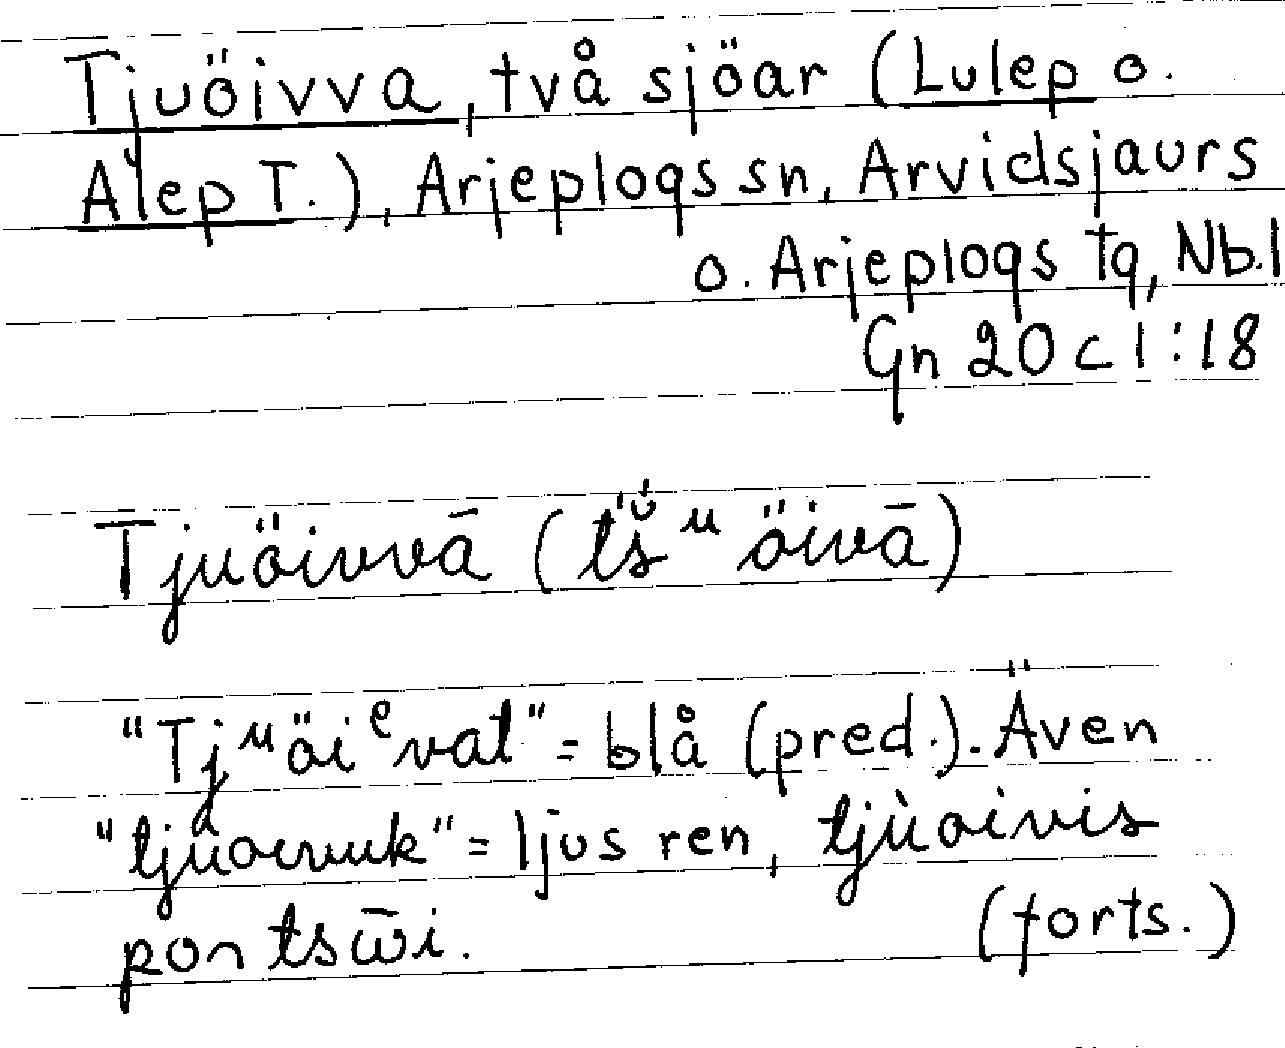 Tjuöivva, två sjöar (Lulep o.
Alep T.), Arjeplogs sn, Arvidsjaurs
o. Arjeplogs tg, Nb.l
Gn 20 c 1:18
Tjuöivvā (tš ᵘ öivā)
"Tjᵘöiᵉvat" = blå (pred.). Även
"tjùoivuk" = ljus ren, tjùoivis
(forts.)